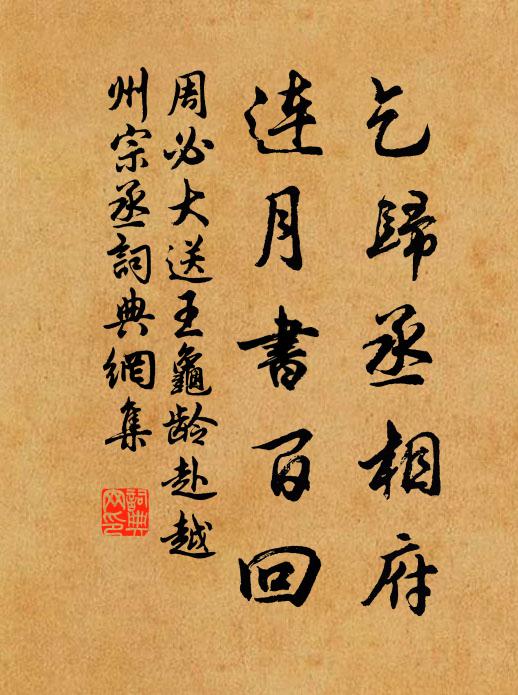 乞歸丞相府
連月書百回
周必大送王龜龄赴越
州宗丞詞典網集
詞典网印